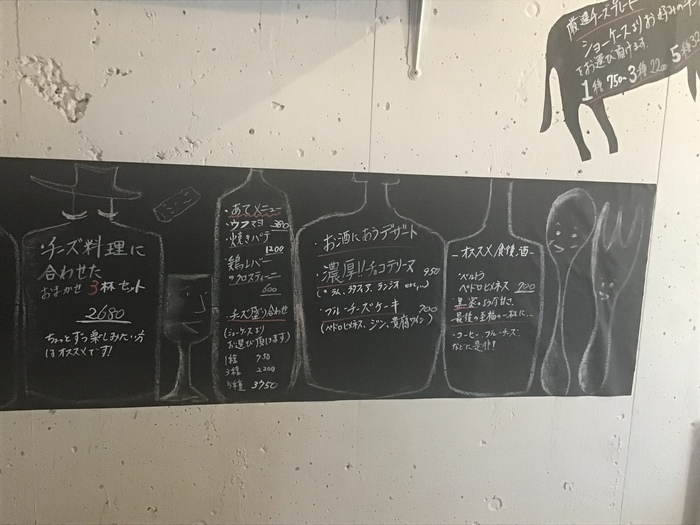 ・チーズ料理に
合わせた
おまかせ 3杯セット
2680
ちょっとずつ楽しみたい方
はオススメです!
・あてメニュー
・ウフマヨ 380
・焼きパテ
1200
・鶏レバー
クロスティーニ
600
・チーズ盛り合わせ
(ショーケースより
お選び頂けます)
1種 750
3種 2200
5種 3750
・お酒にあうデザート
・濃厚!!チョコテリーヌ 950
・ブルーチーズケーキ 700
(ペドロヒメネス、ジン、貴腐ワイン)
-オススメ食後酒-
ペドロヒメネス 700
果実のような甘さ、
最後の至福の一杯に…
・コーヒー、ブルーチーズ
などに是非!
厳選チーズプレート
ショーケースよりお好みのチー
をお選び頂けます
1種 750~ 3種 22 5種 32